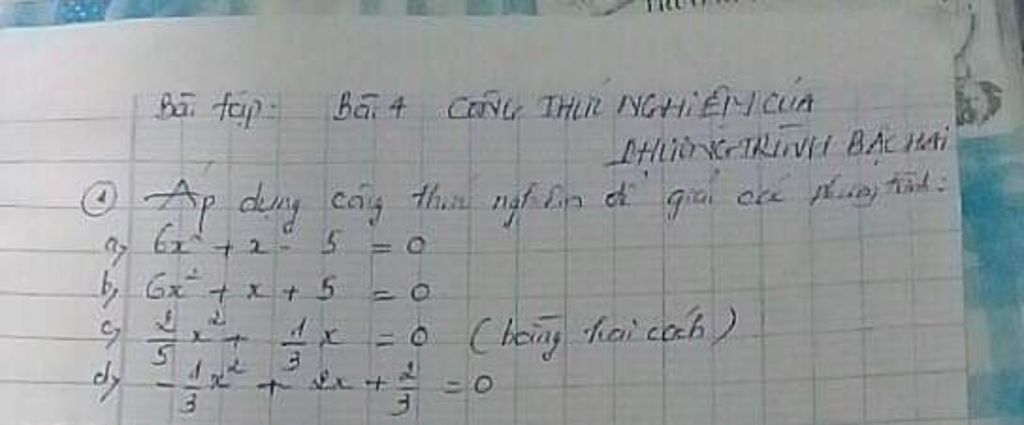 Bài tập: Bài 4 CÔNG THỨC NGHIỆM CỦA
PHƯƠNG TRÌNH BẬC HAI
① Áp dụng công thức nghiệm để giải các phương trình:
a) 6x² + x - 5 = 0
b) 6x² + x + 5 = 0
c) 2/5 x² + 1/3 x = 0 (bằng hai cách)
d) -1/3 x² + 2x + 2/3 = 0